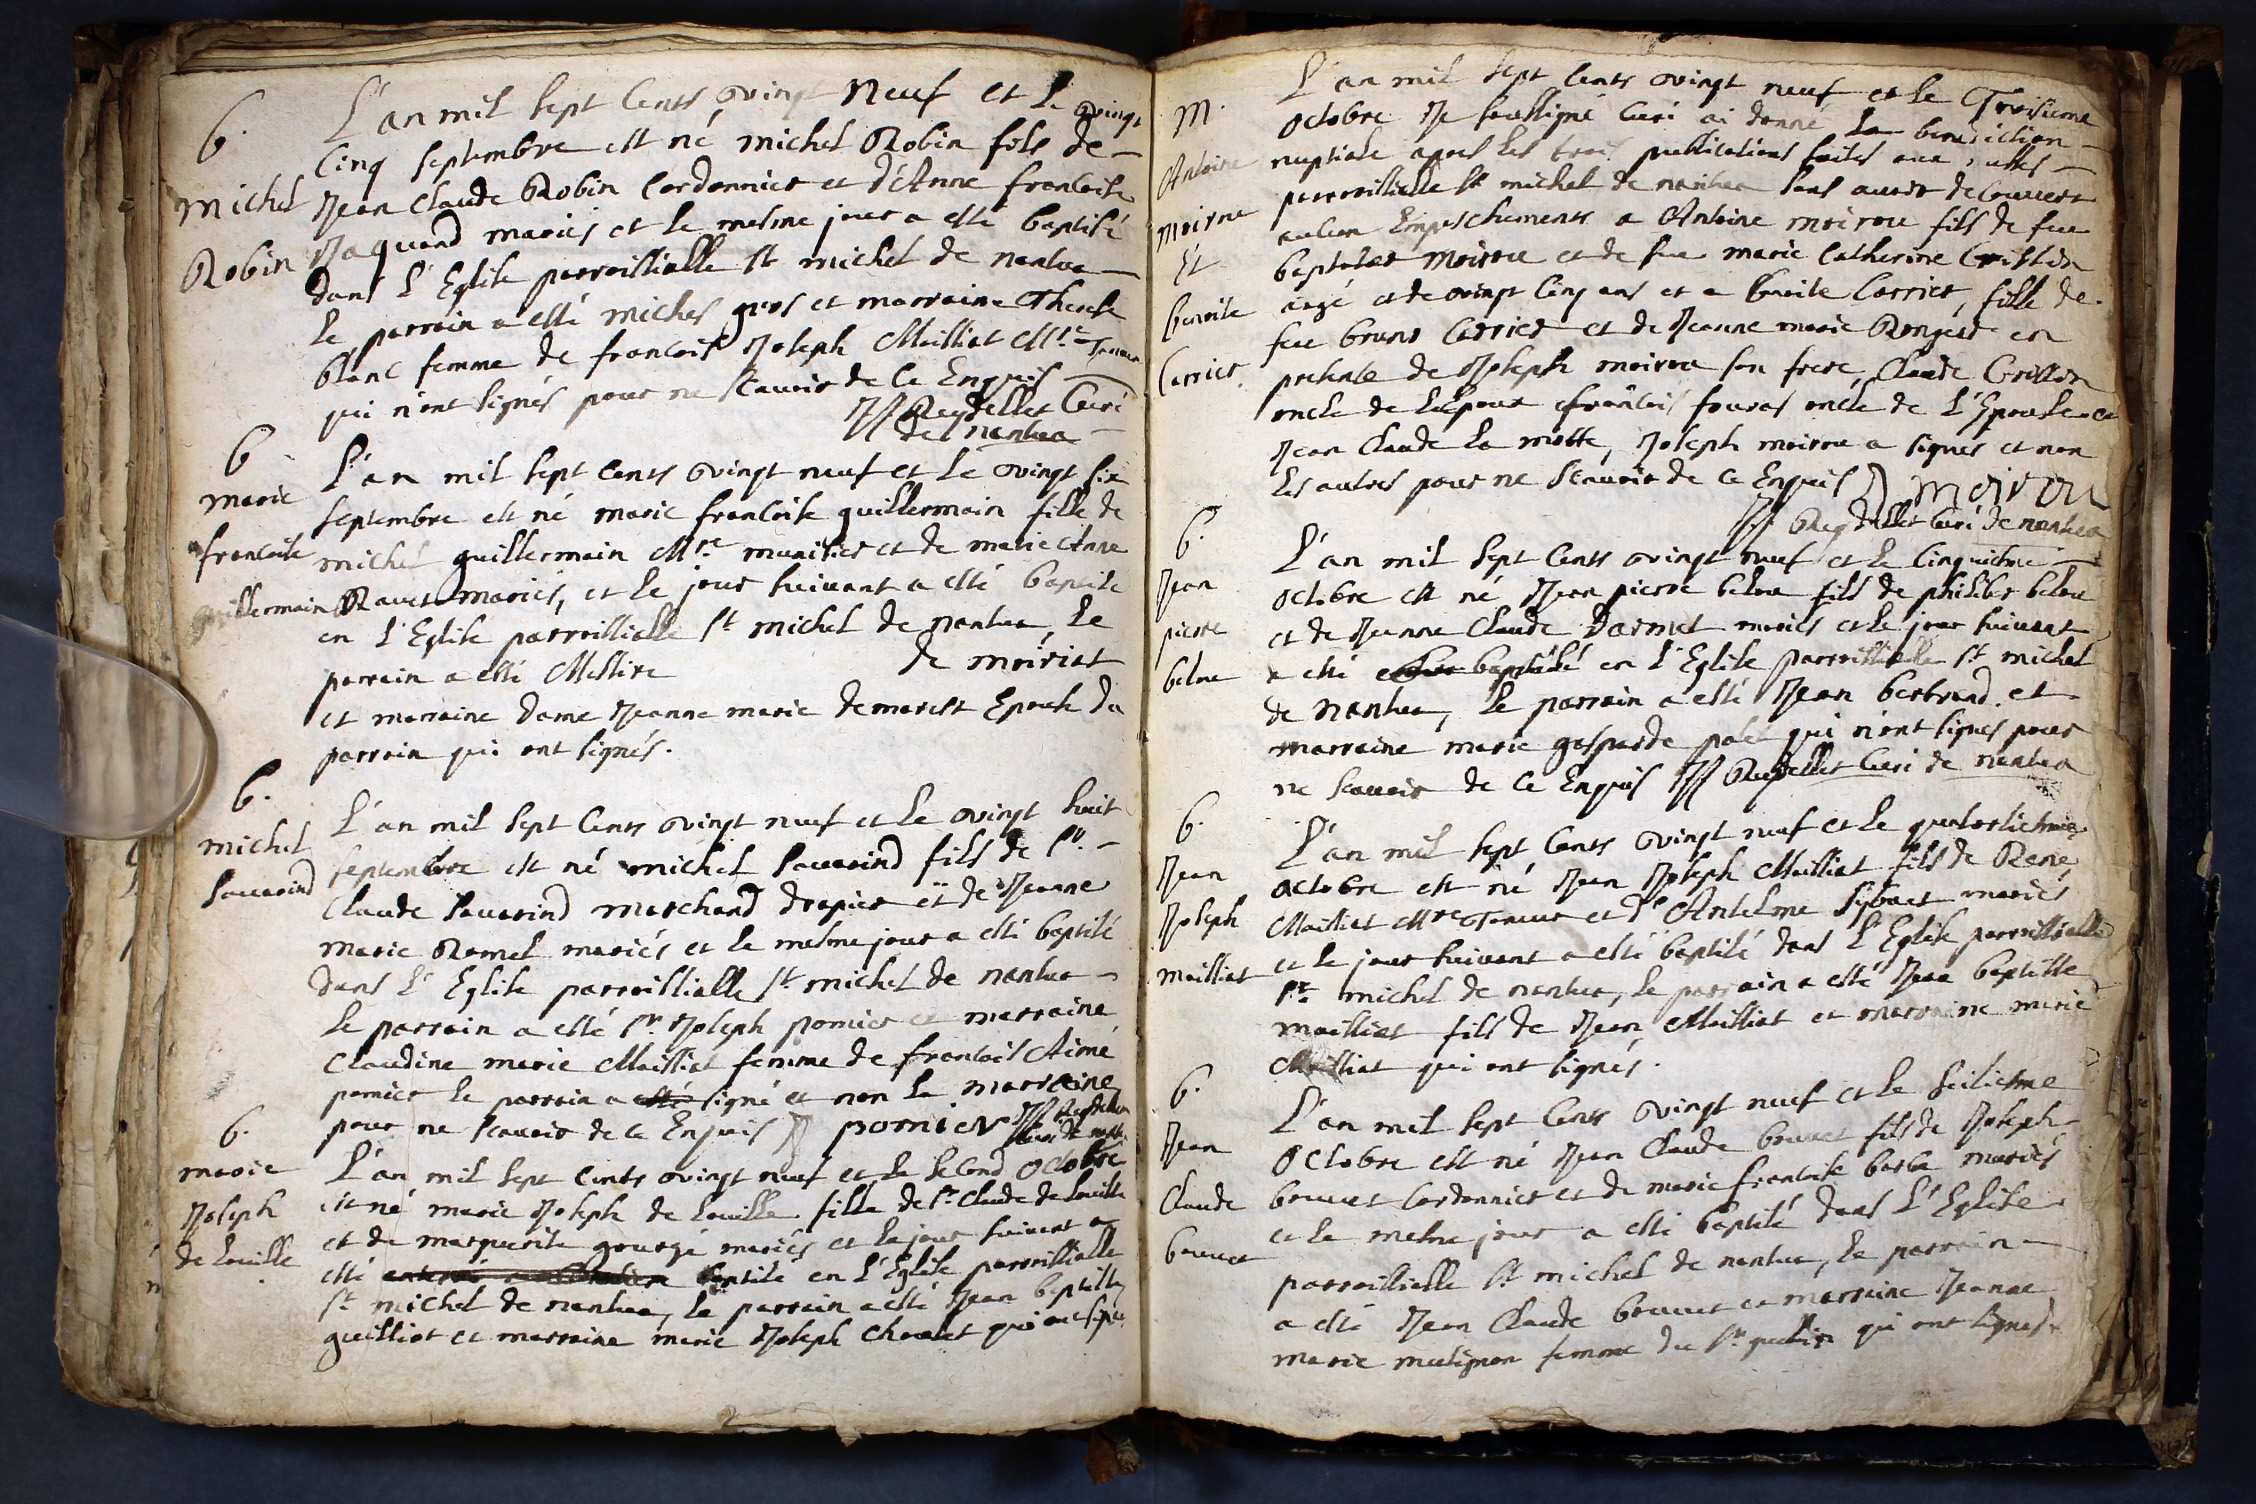 b.
michel
Robin
L'an mil sept cents vingt neuf et le vingt
cinq septembre est né michel Robin fils de
Jean Claude Robin Cordonnier et d'Anne francoise
Jaquand mariés et le mesme jour a esté baptisé
dans l'Eglise parroissialle st michel de nantua
le parrain a esté michel gros et marraine Therese
blanc femme de francois Joseph Mailliat Mre Tanneur
qui n'ont signés pour ne scavoir de ce Enquis
JJ Reydellet Curé
de nantua
b
marie
francoise
guillermain
L'an mil sept cents vingt neuf et le vingt six
septembre est né marie francoise guillermain fille de
michel guillermain Mre munitier et de marie Anne
Ravet mariés, et le jour suivant a esté baptisé
en l'Eglise parroissialle st michel de nantua, le
parrain a esté Messire de moiriat
et marraine dame Jeanne marie demarest Epouse du
parrain qui ont signés.
b.
michel
Savarind
L'an mil sept cents vingt neuf et le vingt huit
septembre est né michel Savarind fils de sr.
Claude Savarind marchand drapier et de Jeanne
marie Ramel mariés et le mesme jour a esté baptisé
dans l'Eglise parroissialle st michel de nantua
le parrain a esté sr Joseph pomier et marraine
Claudine marie Mailliat femme de francois Aimé
pomier le parrain a esté signé et non la marraine
pour ne scavoir de ce Enquis J pomier JJ Reydellet
Curé de nantua
b.
marie
Joseph
de Louille
L'an mil sept cents vingt neuf et le second octobre
est né marie Joseph de Louille fille de sr Claude de Louille
et de marguerite gourgé mariés et le jour suivant a
esté baptisé en l'Eglise parroissialle
st michel de nantua, le parrain a esté Jean baptiste
guilliot et marraine marie Joseph Choulet qui ont signé
m.
Antoine
moirou
Et
benoite
Carrier
L'an mil sept cents vingt neuf et le Troisieme
octobre Je soussigné curé ai donné la benediction
nuptiale apres les trois publications faites aux
parroissialle st michel de nantua sans avoir decouvert
aucun Empechements a Antoine moirou fils de feu
baptiste moirou et de feu marie Catherine Crestin
aagé de vingt cinq ans et a benoite Carrier, fille de
feu bruno Carrier et de Jeanne marie Rongerd en
presence de Joseph moirou son frere, Claude
oncle de l'Epoux francois fouras oncle de l'Epouse et
Jean Claude la motte, Joseph moirou a signés et non
les autres pour ne scavoir de ce Enquis J moirou
JJ Reydellet curé de nantua
b.
Jean
pierre
belou
L'an mil sept cents vingt neuf et le Cinquiesme
octobre est né Jean pierre belou fils de philiber belou
et de Jeanne Claude Darmet mariés et le jour suivant
a esté baptisé en l'Eglise parroissialle st michel
de nantua, le parrain a esté Jean bertrand et
marraine marie gasparde qui n'ont signes pour
ne scavoir de ce Enquis JJ Reydellet curé de nantua
b.
Jean
Joseph
mailliat
L'an mil sept cents vingt neuf et le quatorsiesme
octobre est né Jean Joseph Mailliat fils de Rene
Mailliat Mre Tanneur et de Antelme Sibuet mariés
et le jour suivant a esté baptisé dans l'Eglise parroissialle
st michel de nantua, le parrain a esté Jean baptiste
mailliat fils de Jean Mailliat et marraine marie
Mailliat qui ont signés.
b.
Jean
Claude
bouvet
L'an mil sept cents vingt neuf et le seiziesme
octobre est né Jean Claude bouvet fils de Joseph
bouvet Cordonnier et de marie francoise barbe mariés
et le mesme jour a esté baptisé dans l'Eglise
parroissialle st michel de nantua, le parrain
a esté Jean Claude bouvet et marraine Jeanne
marie mulignon femme du sr qui ont signes